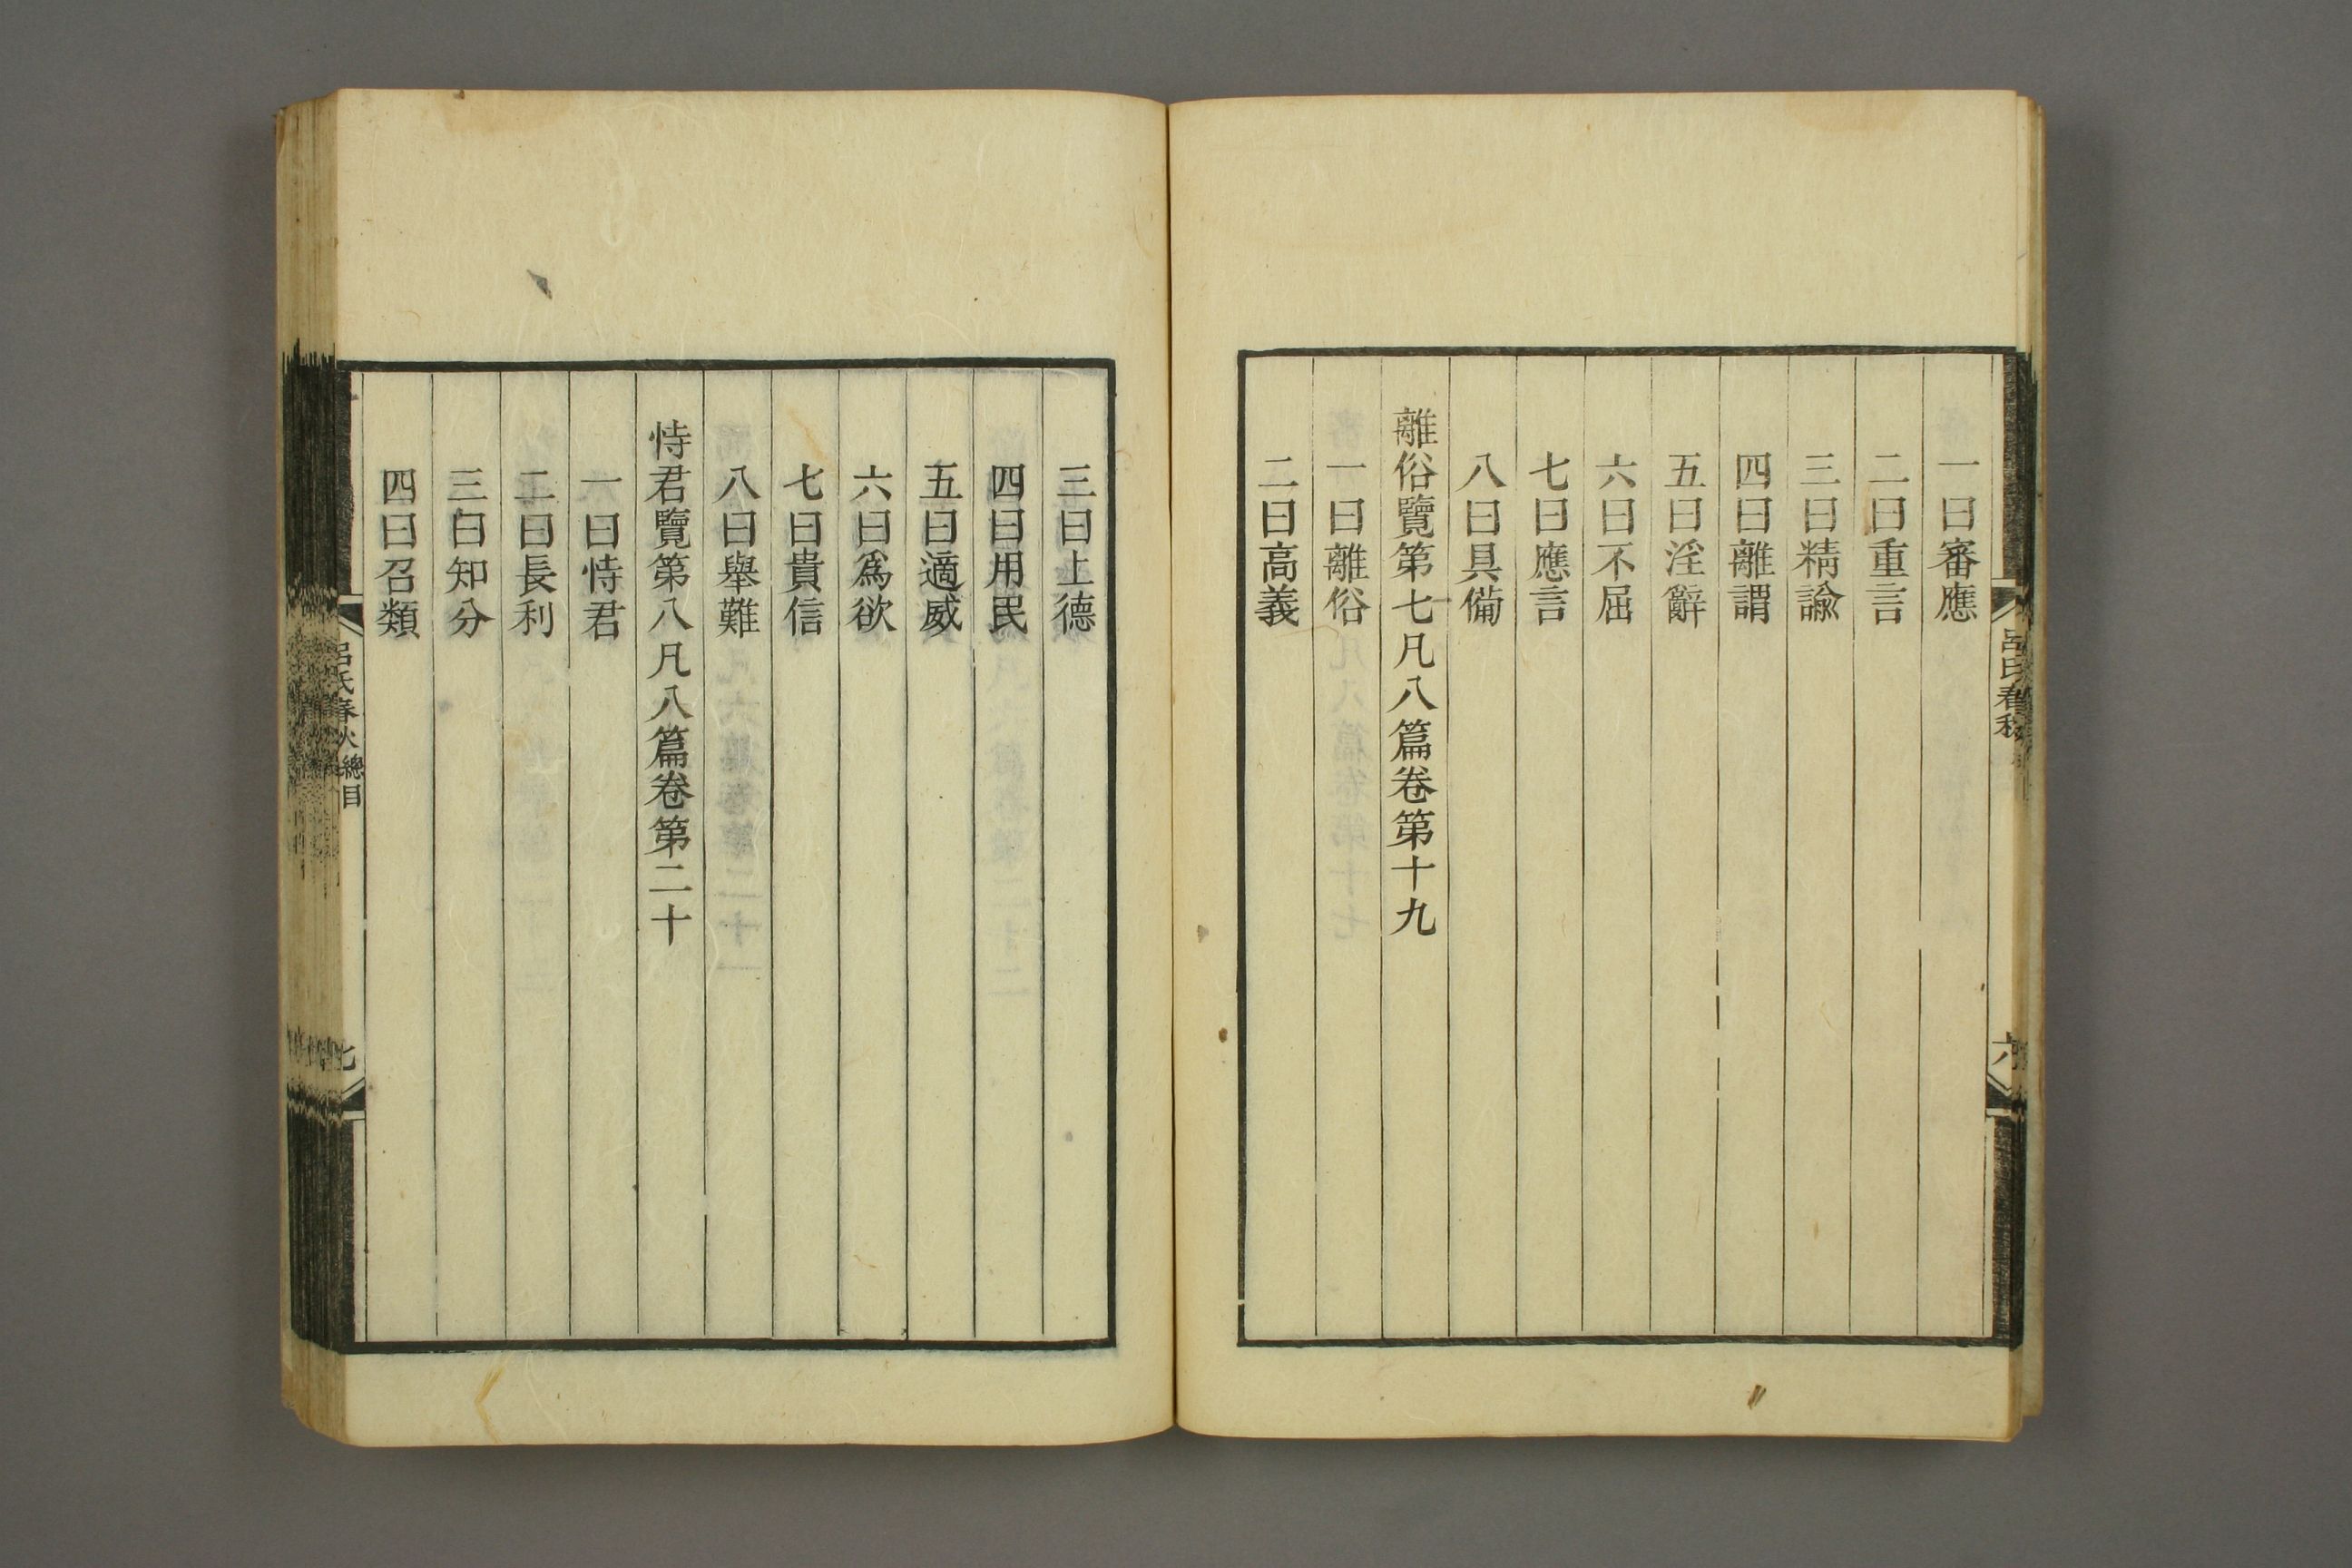 一曰審應
二曰重言
三曰精諭
四曰離謂
五曰淫辭
六曰不屈
七曰應言
八曰具備
離俗覽第七凡八篇卷第十九
一曰離俗
二曰高義
三曰上德
四曰用民
五曰適威
六曰爲欲
七曰貴信
八曰舉難
恃君覽第八凡八篇卷第二十
一曰恃君
二曰長利
三曰知分
四曰召類
呂氏春秋
六
呂氏春秋 總目
七